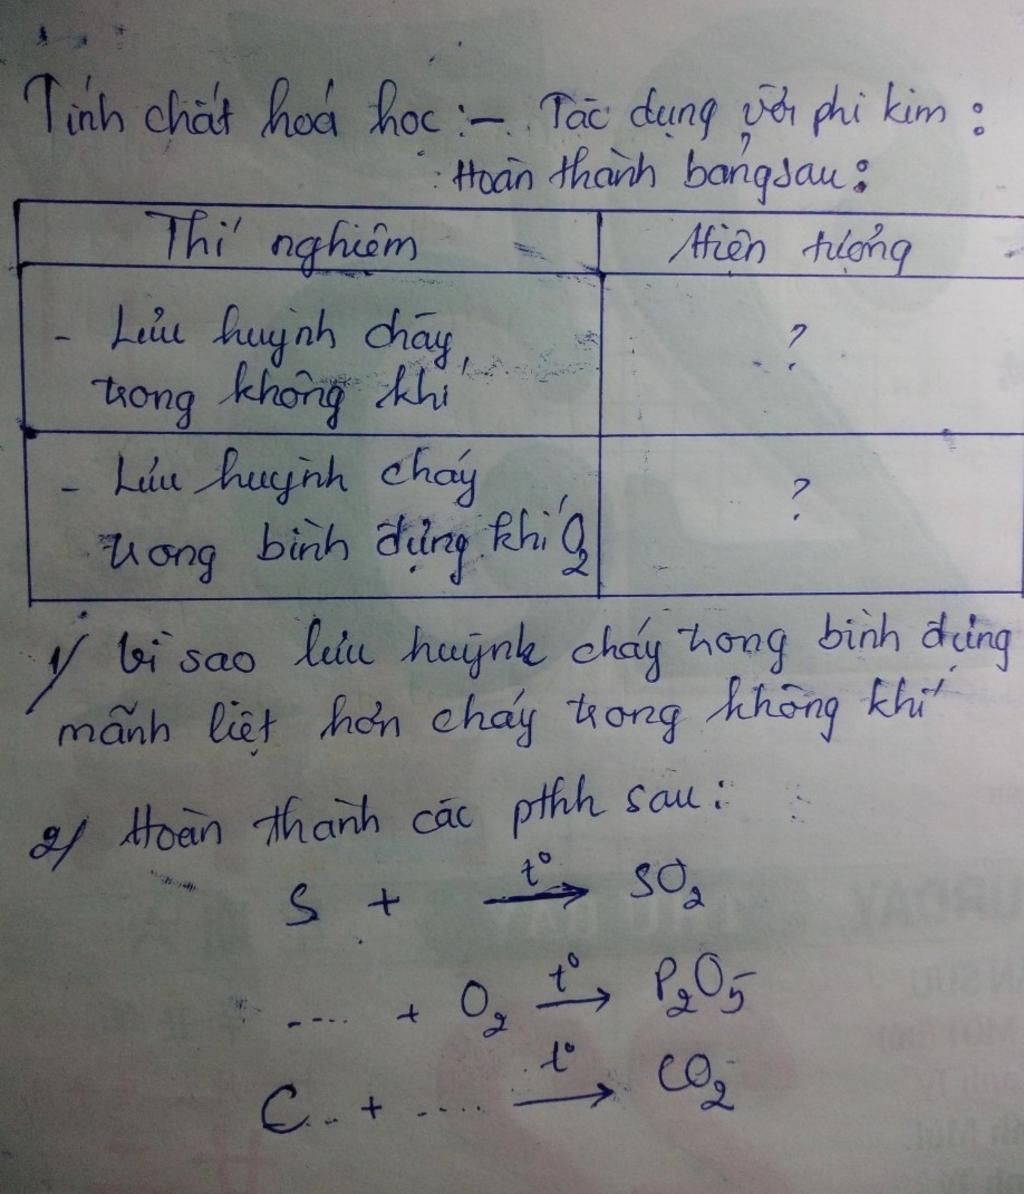 Tính chất hoá học :- Tác dụng với phi kim :
Hoàn thành bảng sau :
Thí nghiệm
Hiện tượng
- Lưu huỳnh cháy
trong không khí
?
- Lưu huỳnh cháy
trong bình đựng khí O₂
?
1/ Vì sao lưu huỳnh cháy trong bình đựng
mãnh liệt hơn cháy trong không khí
2/ Hoàn thành các pthh sau :
S + t° → SO₂
.... + O₂ t° → P₂O₅
C .. + ..... t° → CO₂